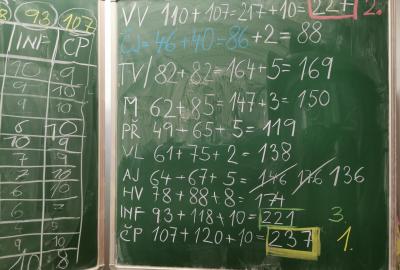 93 107
INF ČP
10 9
9 10
9 10
6 10
10 9
7 9
7 10
6 10
6 7
4 10
9 10
10 8
VV 110+107=217+10=227 2.
ČJ=46+40=86+2=88
TV/82+82=164+5=169
M 62+85=147+3=150
PŘ 49+65+5=119
VL 61+75+2=138
AJ 64+67+5=146 126 136
HV 78+88+8=174
INF 93+118+10=221 3.
ČP 107+120+10=237 1.